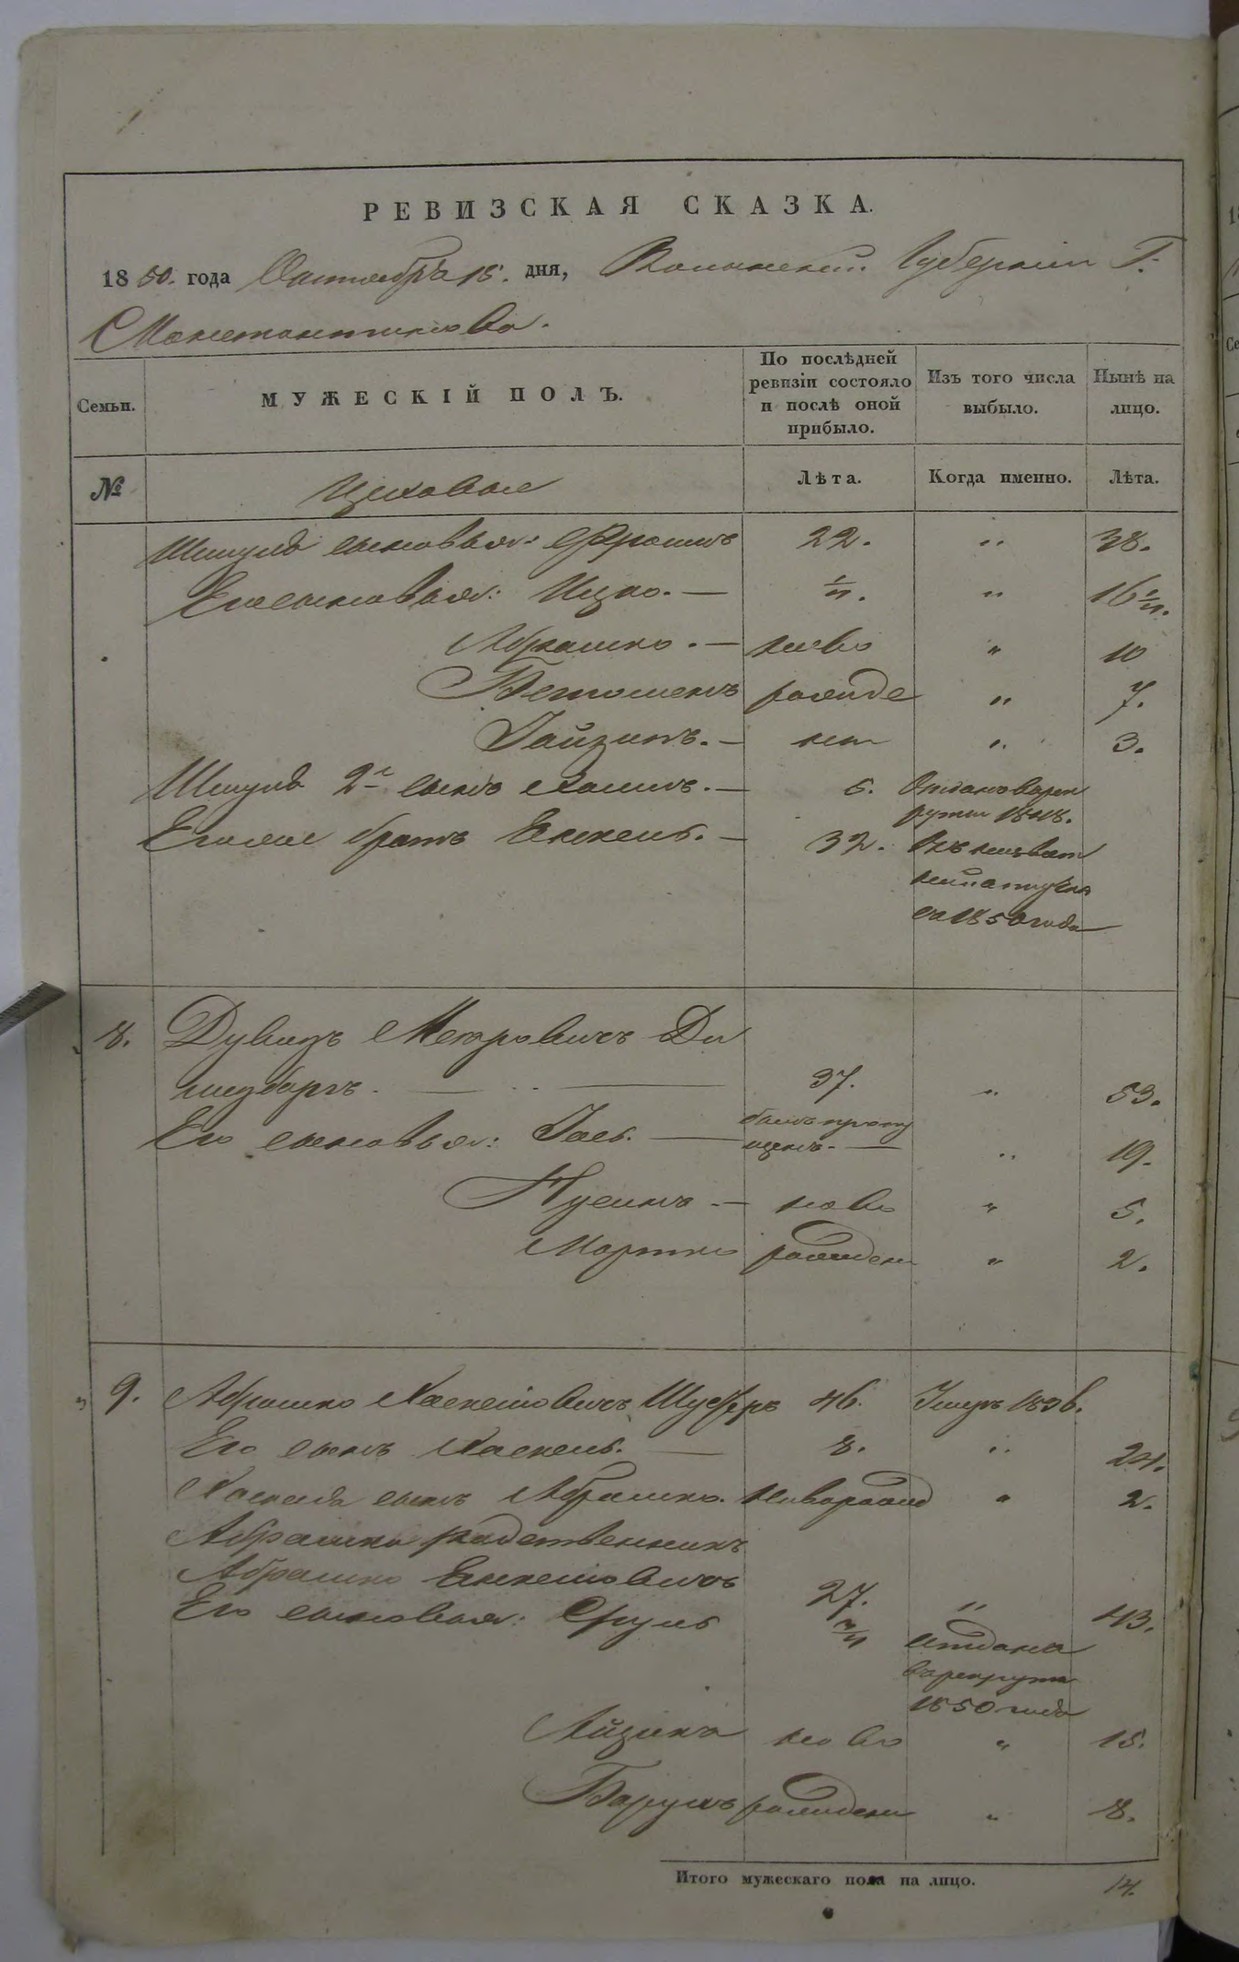 РЕВИЗСКАЯ СКАЗКА.
1850. года Октября 15. дня, Волынской Губернии Г.
Староконстантинова.
Семьи.
МУЖЕСКІЙ ПОЛЪ.
По послѣдней
ревизіи состояло
и послѣ оной
прибыло.
Изъ того числа
выбыло.
Нынѣ на
лицо.
№
Цеховые
Лѣта.
Когда именно.
Лѣта.
Шмуля сыновья: Фроимъ 22. " 38.
Его сыновья: Ицко. — " 16
Абрамко. — ново " 10
рожде " 7.
— нн " 3.
Шмуля 2й сынъ — 6. Отданъ в рек
руты 1848.
брать Янкель. — 32. Въ неизвѣст
ной отлучке
съ 1850 года
8. Дувидъ Мееровичъ Ди
нцбаръ. — 37. " 53.
Его сыновья: Іось. — былъ пропу
щенъ. — " 19.
Нусинъ — ново " 5.
Мортко рожден " 2.
9. Абрамко Хаскелiовичъ 46. Умеръ 1836.
Его сынъ Хаскель. — 8. " 24.
Хаскеля сынъ Абрамко. Новорожд " 2.
Абрамка родственникъ
Абрамко Янкелiовичъ 27. " 43.
Его сыновья: Сруль отданъ
в рекруты
1850 года
Айзикъ ново " 15.
Барухъ рожден " 8.
Итого мужескаго пола на лицо. 14.